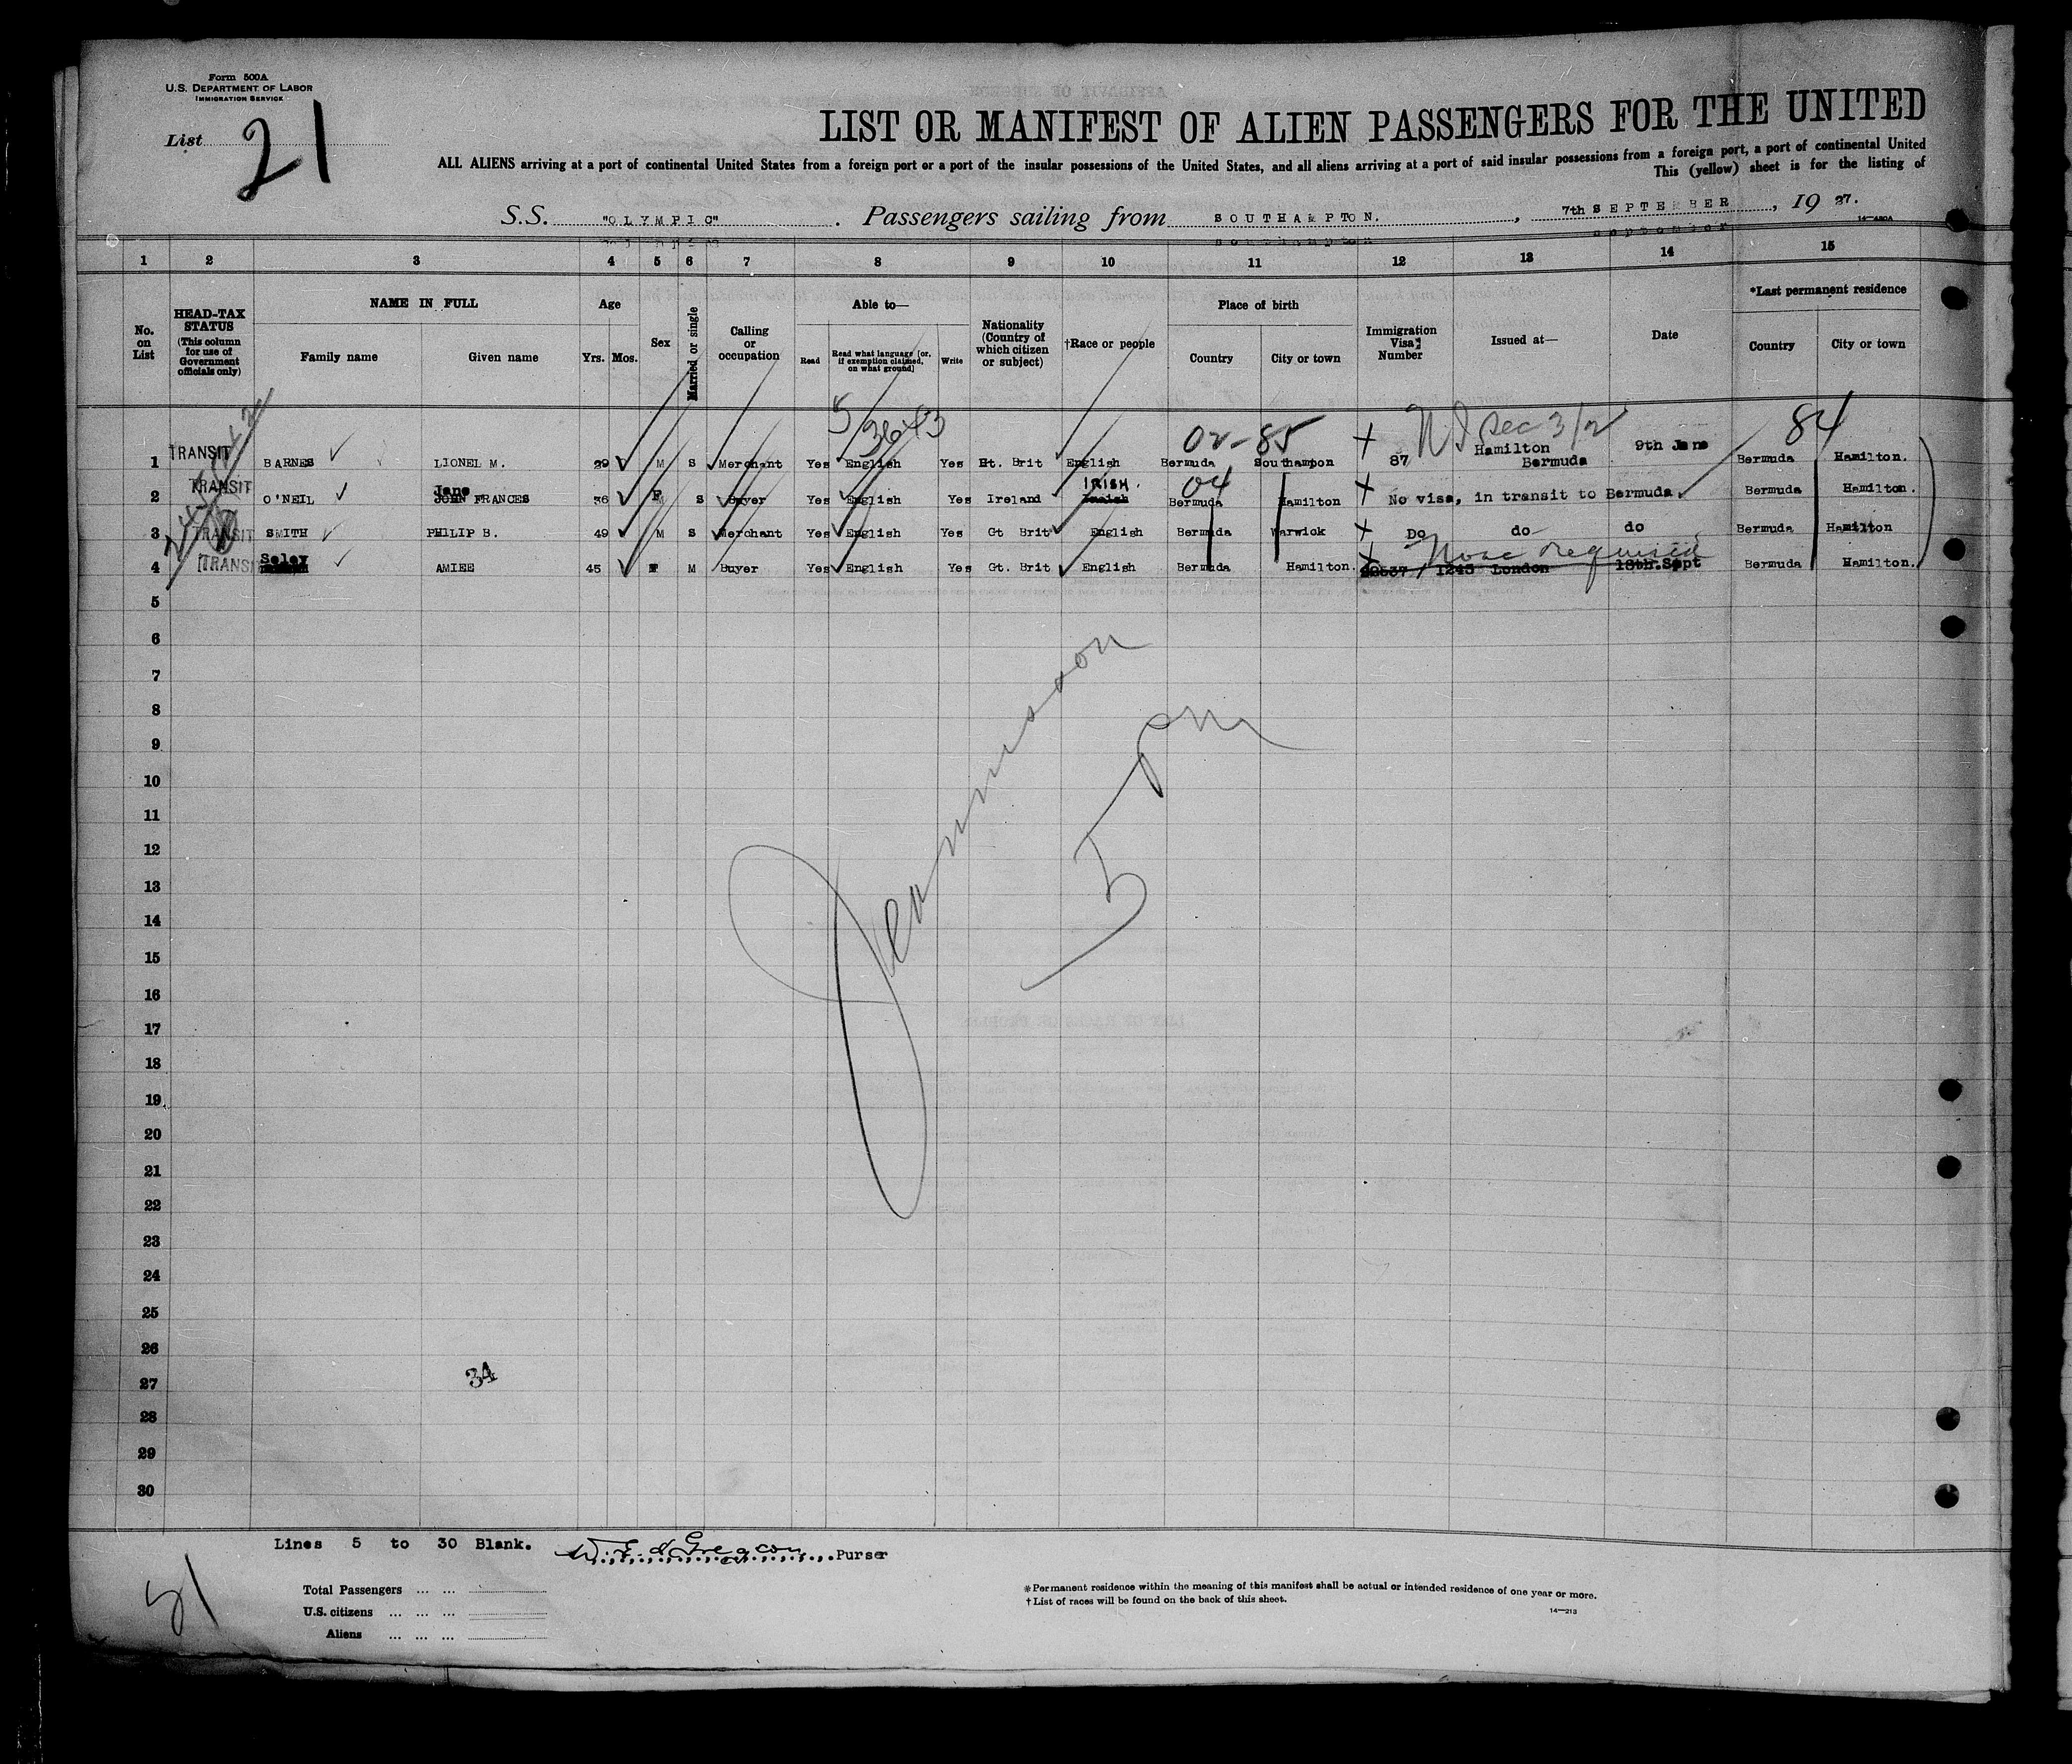 Form 500A
U.S. DEPARTMENT OF LABOR
IMMIGRATION SERVICE
List 21
LIST OR MANIFEST OF ALIEN PASSENGERS FOR THE UNITED
ALL ALIENS arriving at a port of continental United States from a foreign port or a port of the insular possessions of the United States, and all aliens arriving at a port of said insular possessions from a foreign port, a port of continental United
This (yellow) sheet is for the listing of
S.S. "OLYMPIC". Passengers sailing from SOUTHAMPTON., 7th SEPTEMBER, 19 27.
14—480A
1 2 3 4 5 6 7 8 9 10 11 12 13 14 15
No. on List
HEAD-TAX STATUS (This column for use of Government officials only)
NAME IN FULL
Family name Given name
Age
Yrs. Mos.
Sex
Married or single
Calling or occupation
Able to—
Read
Read what language [or, if exemption claimed, on what ground]
Write
Nationality (Country of which citizen or subject)
†Race or people
Place of birth
Country City or town
Immigration Visa Number
Issued at—
Date
*Last permanent residence
Country City or town
5 3643 02-85 Sec 3/2 84
1 TRANSIT BARNES LIONEL M. 29 M S Merchant Yes English Yes Bt. Brit English Bermuda Southampon 87 Hamilton Bermuda 9th June Bermuda Hamilton.
2 TRANSIT O'NEIL Jane JOHN FRANCES 36 F S Buyer Yes English Yes Ireland IRISH. 04 Bermuda Hamilton No visa, in transit to Bermuda. Bermuda Hamilton.
3 TRANSIT SMITH PHILIP B. 49 M S Merchant Yes English Yes Gt Brit English Bermuda Warwick Do do do Bermuda Hamilton
4 TRANSIT Seley AMIEE 45 F M Buyer Yes English Yes Gt. Brit English Bermuda Hamilton. None required 1245 London 18th.Sept Bermuda Hamilton.
5
6
7
8
9
10
11
12
13
14
15
16
17
18
19
20
21
22
23
24
25
26
27
28
29
30
5 pm
34
Lines 5 to 30 Blank. Purser
Total Passengers ... ...
U.S. citizens ... ... ...
Aliens ... ... ...
*Permanent residence within the meaning of this manifest shall be actual or intended residence of one year or more.
†List of races will be found on the back of this sheet.
14—213